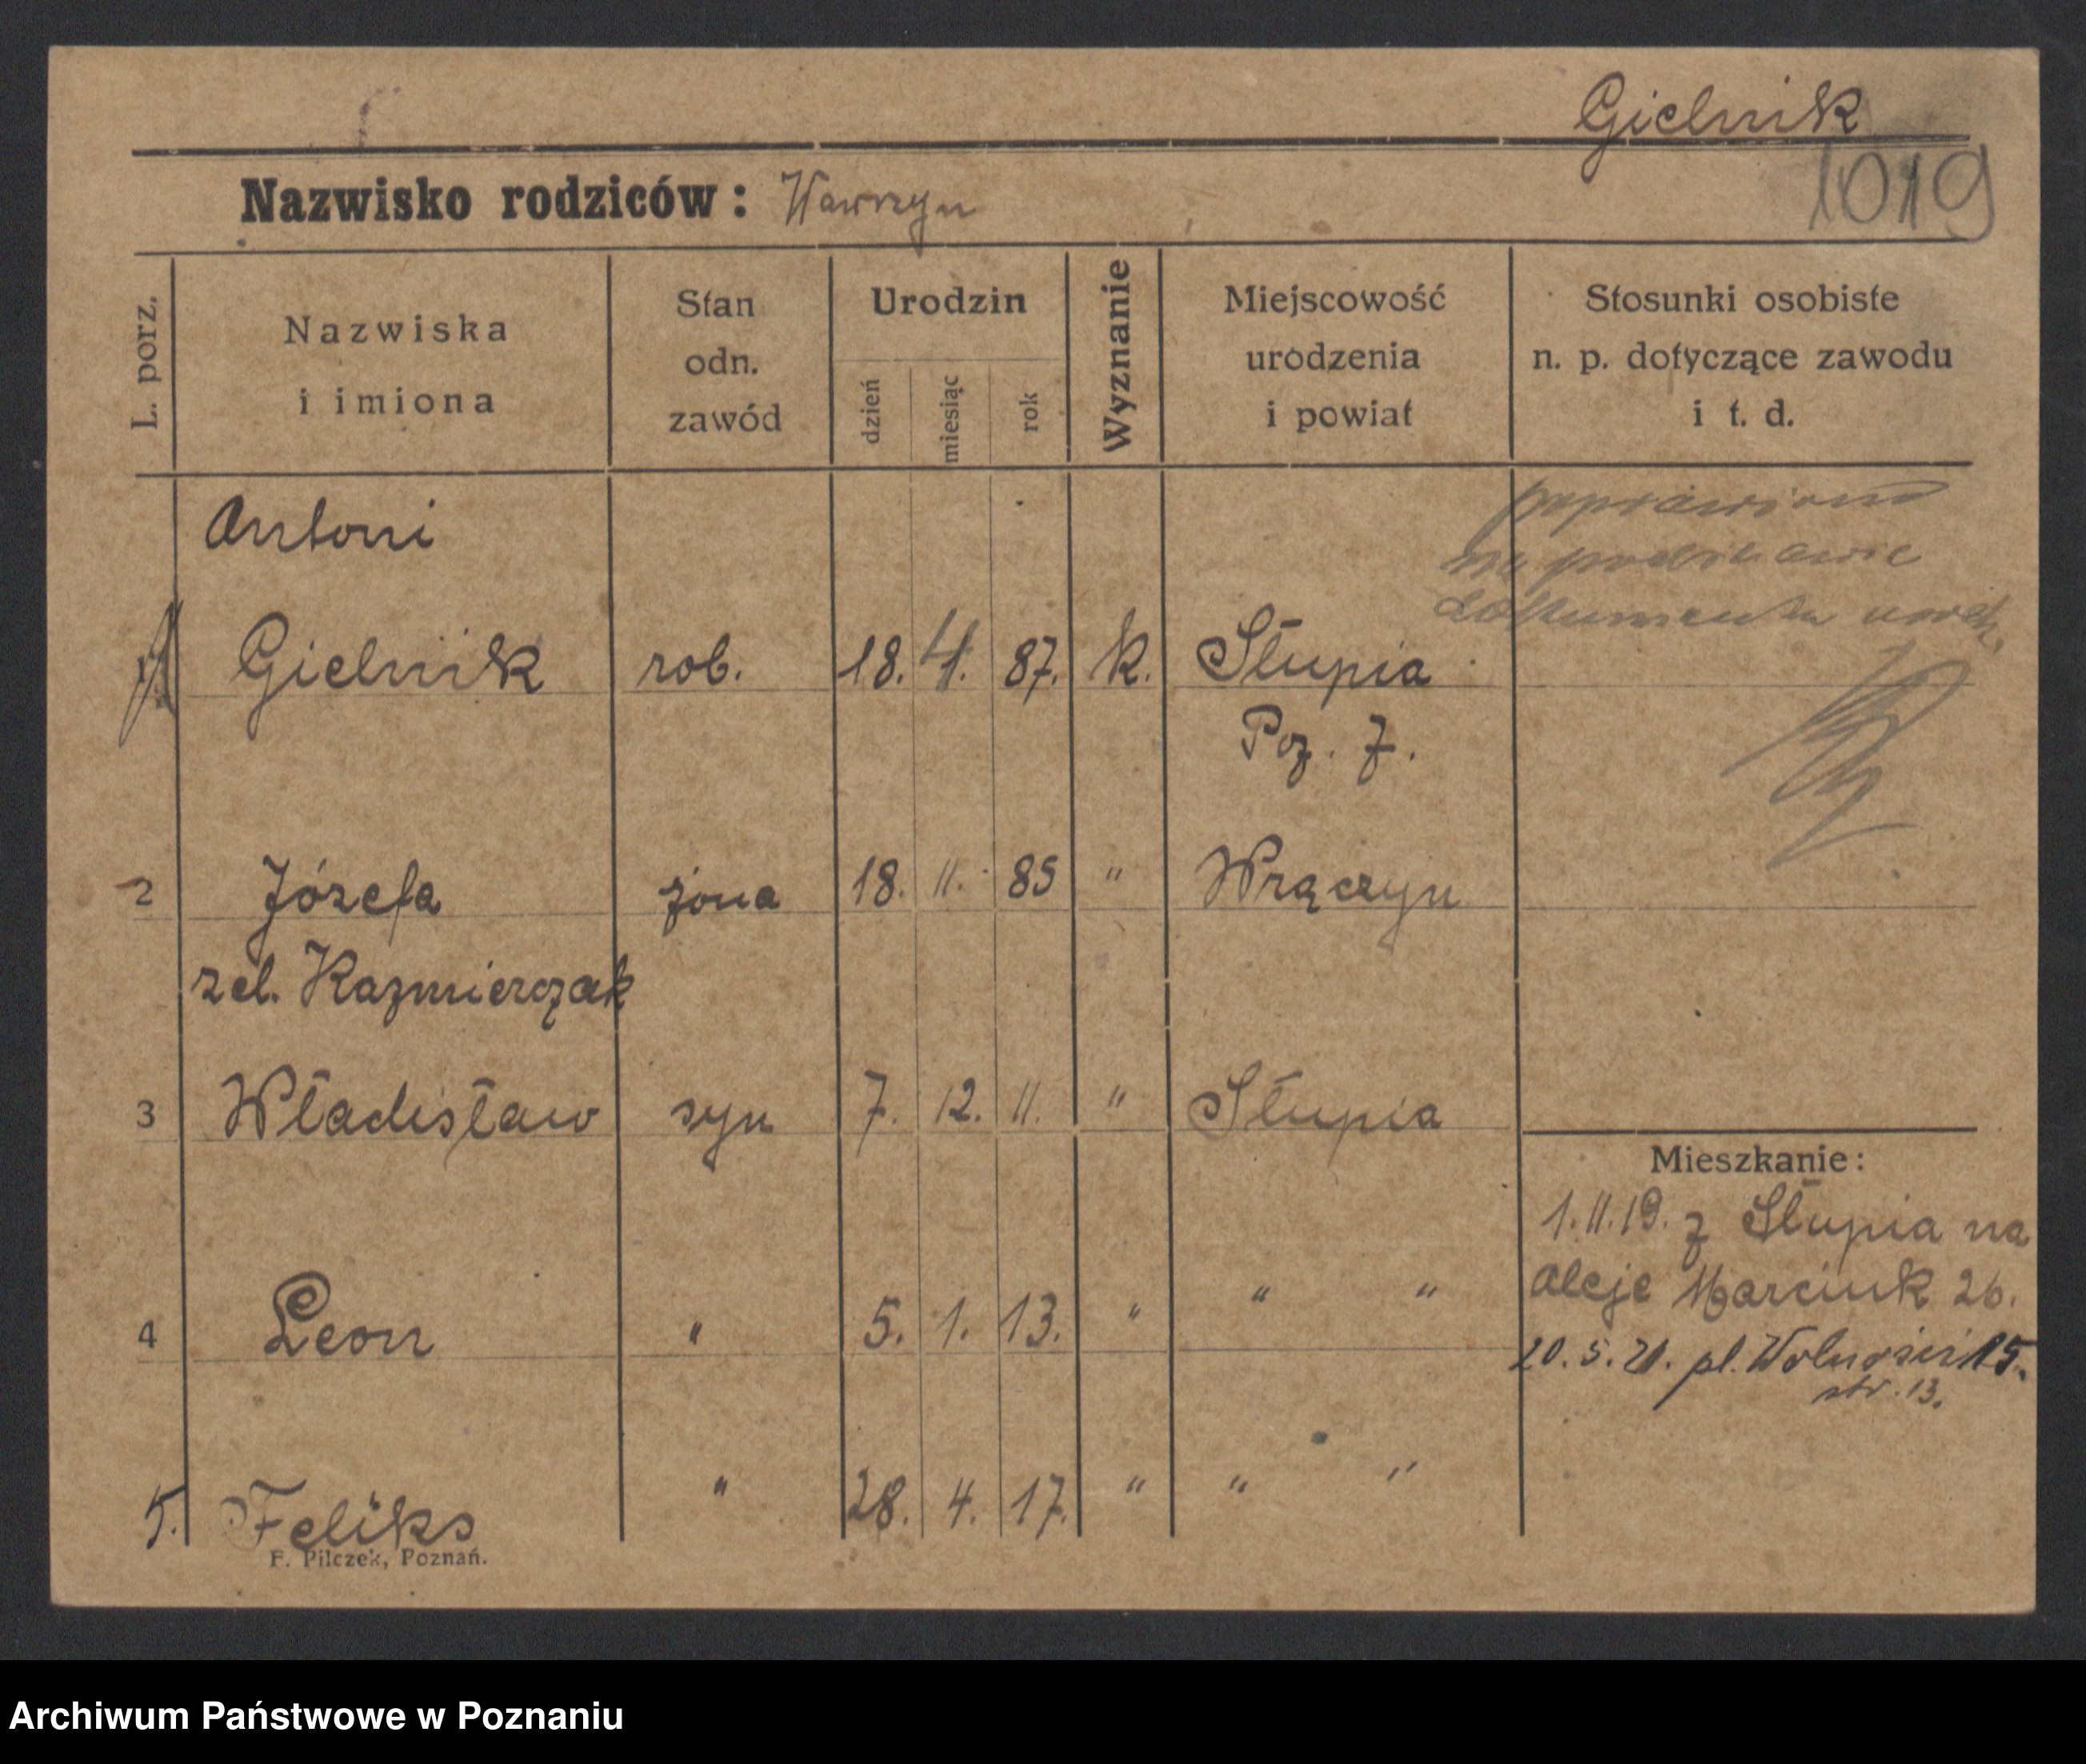 Gielnik
1019
Nazwisko rodziców: Wawrzyn
L. porz.
Nazwiska
i imiona
Stan
odn.
zawód
Urodzin
dzień
miesiąc
rok
Wyznanie
Miejscowość
urodzenia
i powiat
Stosunki osobiste
n. p. dotyczące zawodu
i t. d.
Antoni
poprawiono
na podstawie
dokumentu
1 Gielnik rob. 18. 4. 87. k. Słupia
Poz. Z.
2 Józefa żona 18. 11. 85 " Wrączyn
zel. Kazmierczak
3 Władisław syn 7. 12. 11. " Słupia
Mieszkanie:
1.11.19. z Słupia na
4 Leon " 5. 1. 13. " " "
Aleje Marcink 26.
20.5.21. pl. Wolności 15.
str. 13.
5. Feliks " 28. 4. 17. " " "
F. Pilczek, Poznań.
Archiwum Państwowe w Poznaniu